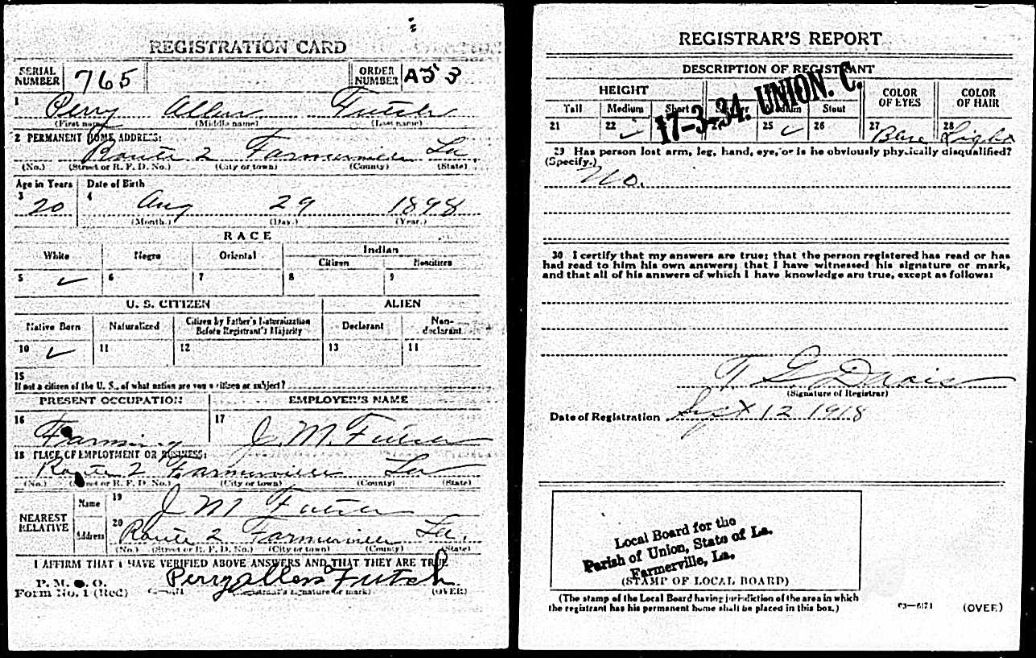 REGISTRATION CARD
SERIAL NUMBER 765
ORDER NUMBER
1 Perry Allen Futch
(First name) (Middle name) (Last name)
2 PERMANENT HOME ADDRESS:
Route 2 Farmerville La.
(No.) (Street or R. F. D. No.) (City or town) (County) (State)
Age in Years Date of Birth
3 20 4 Aug 29 1898
(Month.) (Day.) (Year.)
RACE
White Negro Oriental Indian
Citizen Noncitizen
5 ✓ 6 7 8 9
U. S. CITIZEN ALIEN
Native Born Naturalized Citizen by Father's Naturalization Before Registrant's Majority Declarant Non-declarant
10 ✓ 11 12 13 14
15
If not a citizen of the U. S., of what nation are you a citizen or subject?
PRESENT OCCUPATION EMPLOYER'S NAME
16 Farming 17 J. M. Futch
18 PLACE OF EMPLOYMENT OR BUSINESS:
Route 2 Farmerville La
(No.) (Street or R. F. D. No.) (City or town) (County) (State)
NEAREST RELATIVE
Name 19 J M Futch
Address 20 Route 2 Farmerville La.
(No.) (Street or R. F. D. No.) (City or town) (County) (State)
I AFFIRM THAT I HAVE VERIFIED ABOVE ANSWERS AND THAT THEY ARE TRUE
P. M. G. O.
Form No. 1 (Red) Perry allen Futch
(Registrant's signature or mark) (OVER)
REGISTRAR'S REPORT
17-3-34. UNION. C.
DESCRIPTION OF REGISTRANT
HEIGHT COLOR OF EYES COLOR OF HAIR
Tall Medium Short Slender Medium Stout
21 22 ✓ 25 ✓ 26 27 28 Light
29 Has person lost arm, leg, hand, eye, or is he obviously physically disqualified?
(Specify.) No.
30 I certify that my answers are true; that the person registered has read or has
had read to him his own answers; that I have witnessed his signature or mark,
and that all of his answers of which I have knowledge are true, except as follows:
T G Davis
(Signature of Registrar)
Date of Registration Sept 12 1918
Local Board for the
Parish of Union, State of La.
Farmerville, La.
(STAMP OF LOCAL BOARD)
(The stamp of the Local Board having jurisdiction of the area in which
the registrant has his permanent home shall be placed in this box.)
03-6171 (OVER)